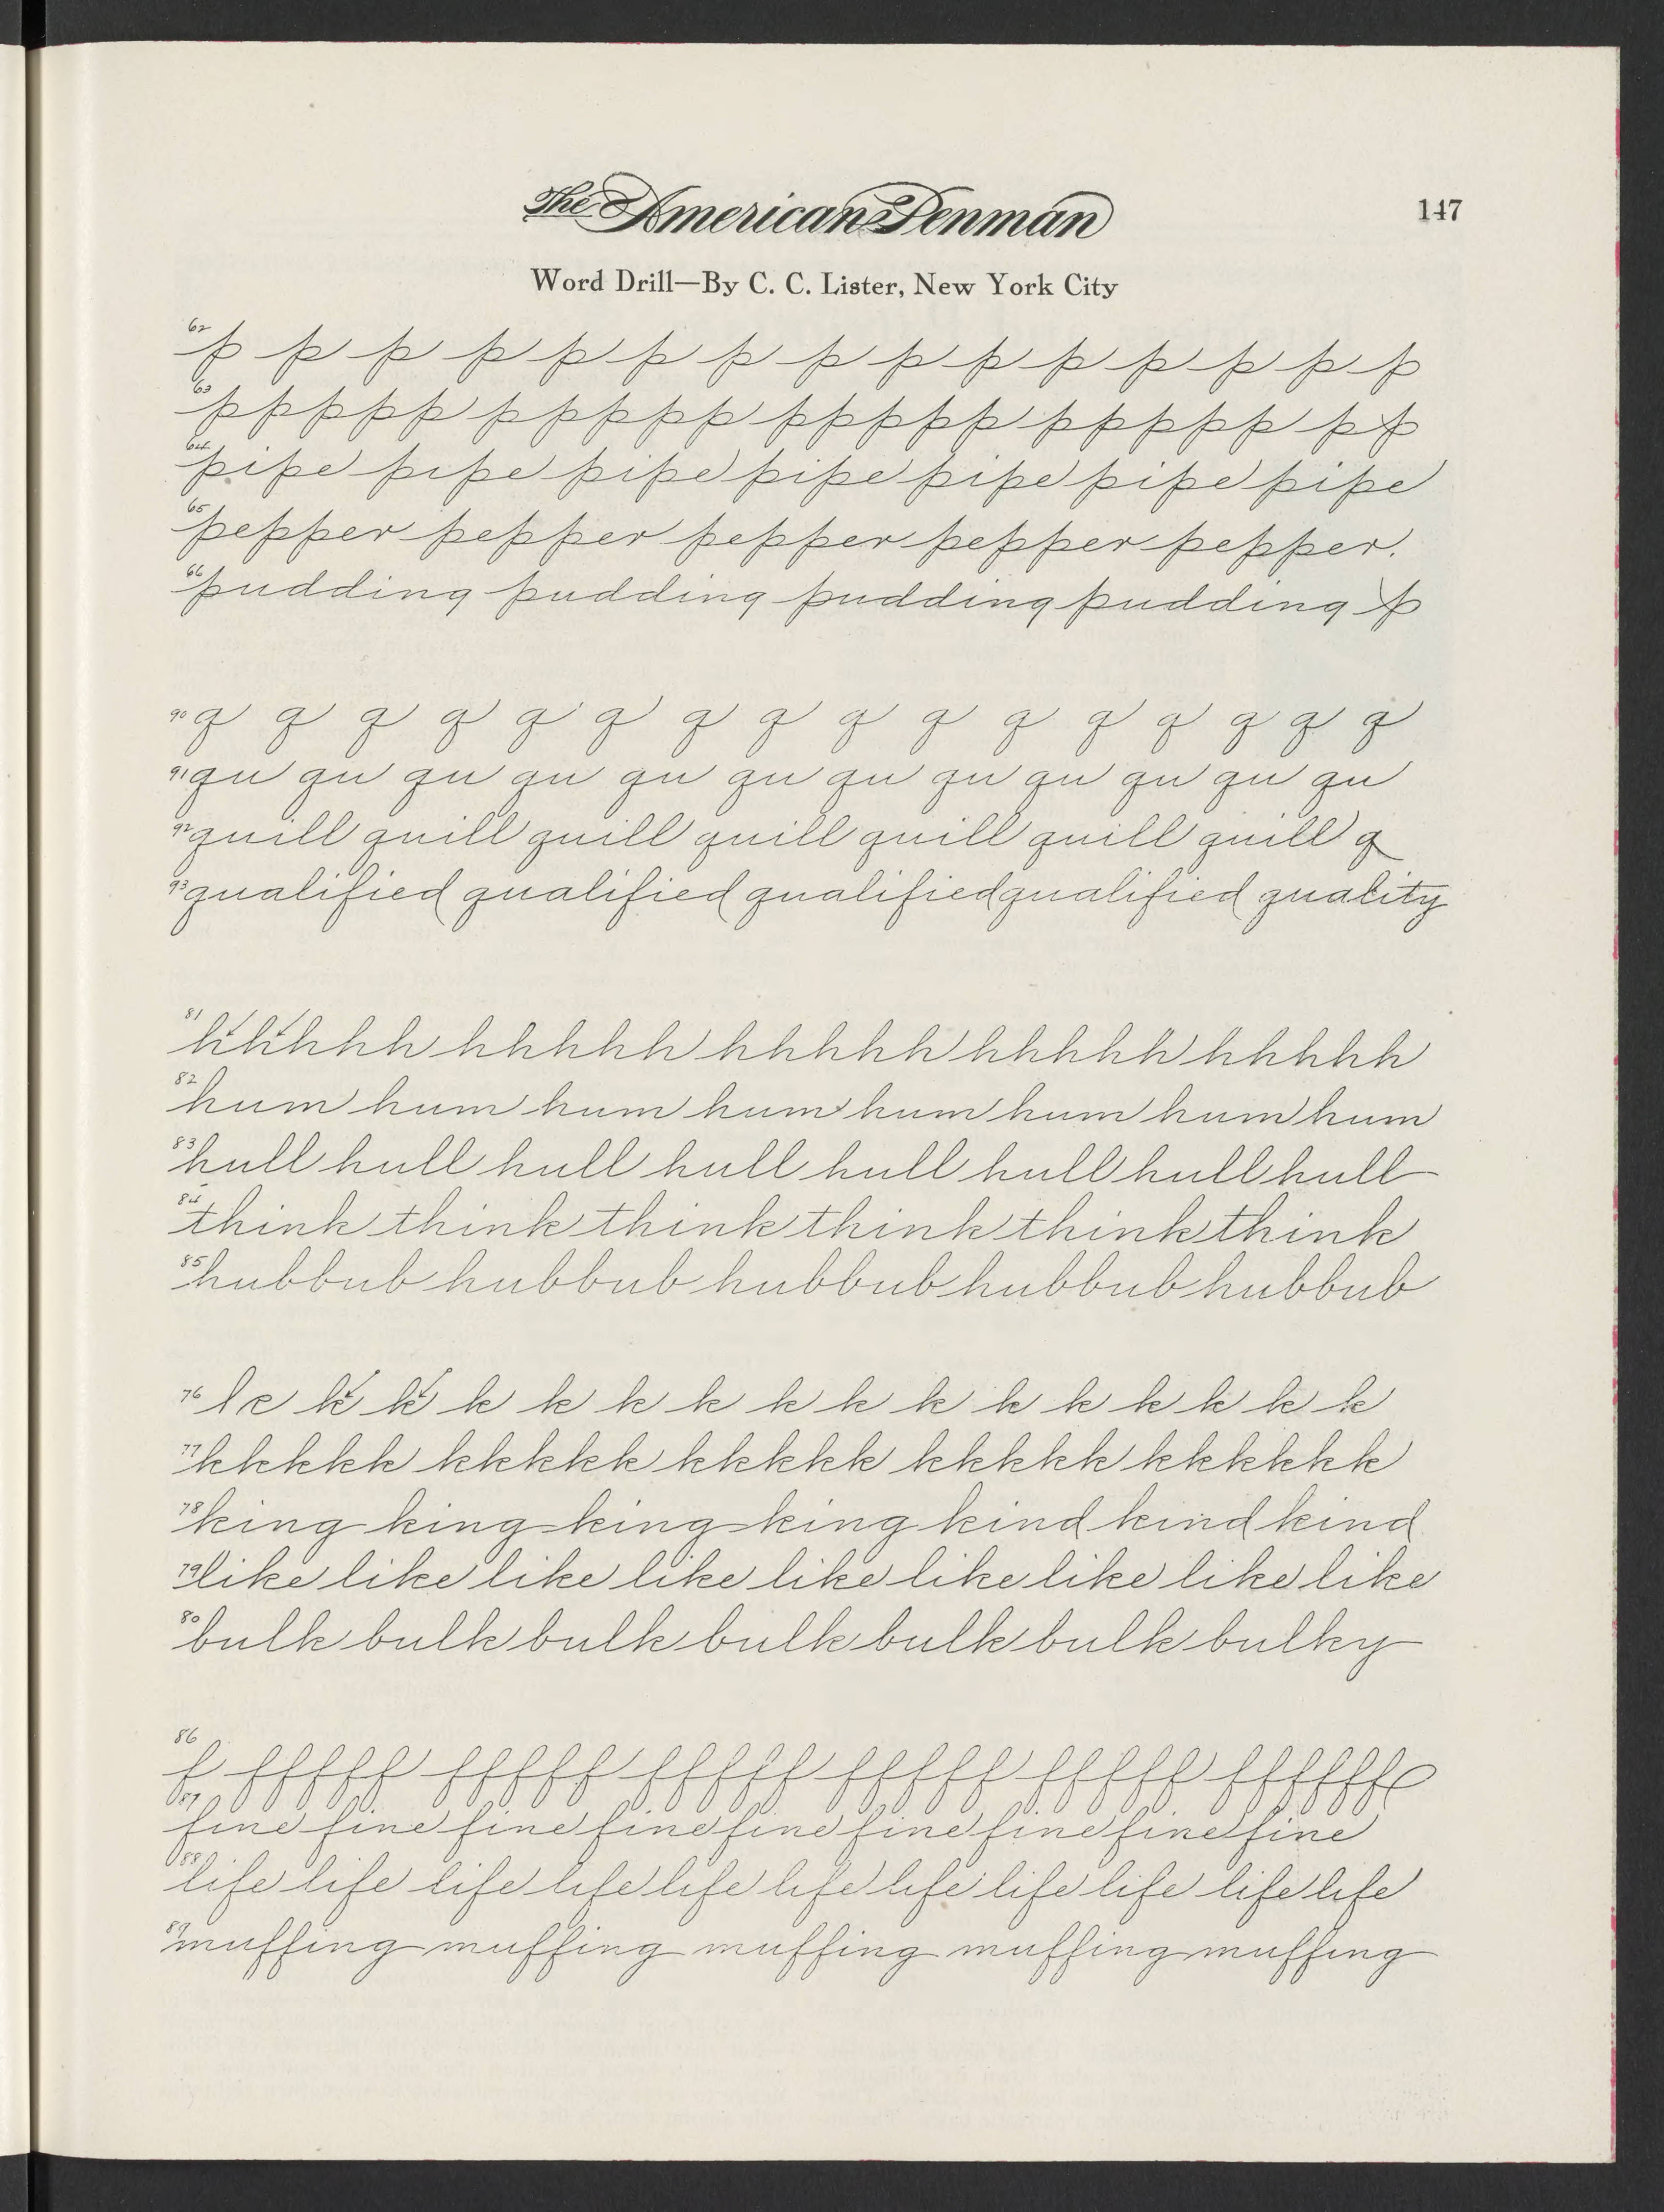 The American Penman
147
Word Drill—By C. C. Lister, New York City
62 p p p p p p p p p p p p p p p
63 ppppp ppppp ppppp ppppp pp
64 pipe pipe pipe pipe pipe pipe pipe
65 pepper pepper pepper pepper pepper.
66 pudding pudding pudding pudding p
90 q q q q q q q q q q q q q q q q
91 qu qu qu qu qu qu qu qu qu qu qu qu
92 quill quill quill quill quill quill quill q
93 qualified qualified qualified qualified quality
81 hhhhh hhhhh hhhhh hhhhh hhhhh
82 hum hum hum hum hum hum hum hum
83 hull hull hull hull hull hull hull hull
84 think think think think think think
85 hubbub hubbub hubbub hubbub hubbub
76 l e k k k k k k k k k k k k k k k
77 kkkkk kkkkk kkkkk kkkkk kkkkkk
78 king king king king kind kind kind
79 like like like like like like like like like
80 bulk bulk bulk bulk bulk bulk bulky
86 f fffff fffff fffff fffff fffff ffffff
87 fine fine fine fine fine fine fine fine fine
88 life life life life life life life life life life life
89 muffing muffing muffing muffing muffing